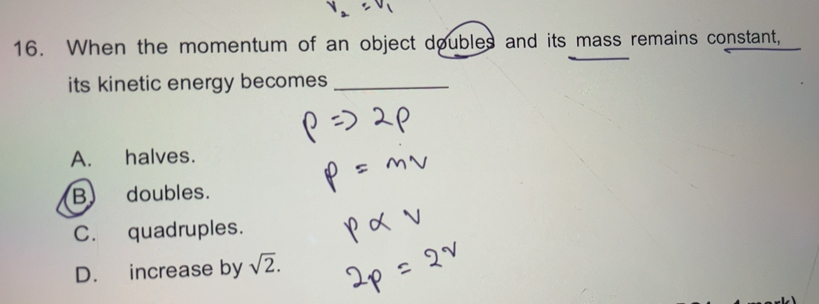 v₂ = v₁
16. When the momentum of an object doubles and its mass remains constant,
its kinetic energy becomes __________
p => 2p
A. halves.
p = mv
B. doubles.
C. quadruples.
p ∝ v
D. increase by √2.
2p = 2v
mark)